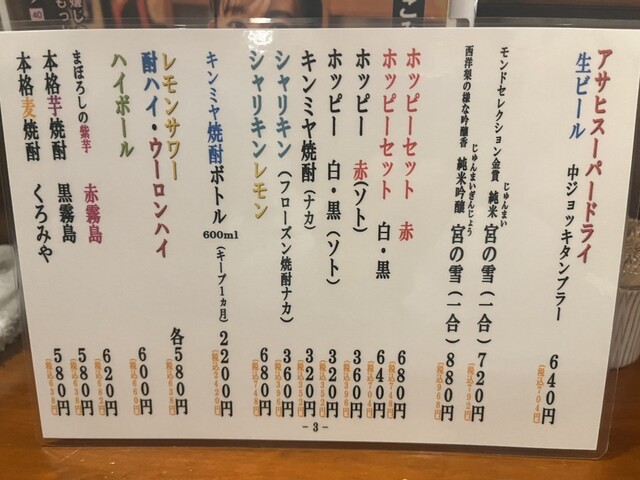 アサヒスーパードライ
生ビール 中ジョッキタンブラー 640円
(税込704円)
モンドセレクション金賞 純米 宮の雪(一合) 720円
じゅんまい
(税込792円)
西洋梨の様な吟醸香 純米吟醸 宮の雪(一合) 880円
じゅんまいぎんじょう
(税込968円)
ホッピーセット 赤 680円
(税込748円)
ホッピーセット 白・黒 640円
(税込704円)
ホッピー 赤(ソト) 360円
(税込396円)
ホッピー 白・黒(ソト) 320円
(税込352円)
キンミヤ焼酎(ナカ) 320円
(税込352円)
シャリキン(フローズン焼酎ナカ) 360円
(税込396円)
シャリキンレモン 680円
(税込748円)
キンミヤ焼酎ボトル 600ml (キープ1ヵ月) 2200円
(税込2420円)
レモンサワー
酎ハイ・ウーロンハイ 各580円
(税込638円)
ハイボール 600円
(税込660円)
まぼろしの紫芋 赤霧島 620円
(税込682円)
本格芋焼酎 黒霧島 580円
(税込638円)
本格麦焼酎 くろみや 580円
(税込638円)
- 3 -